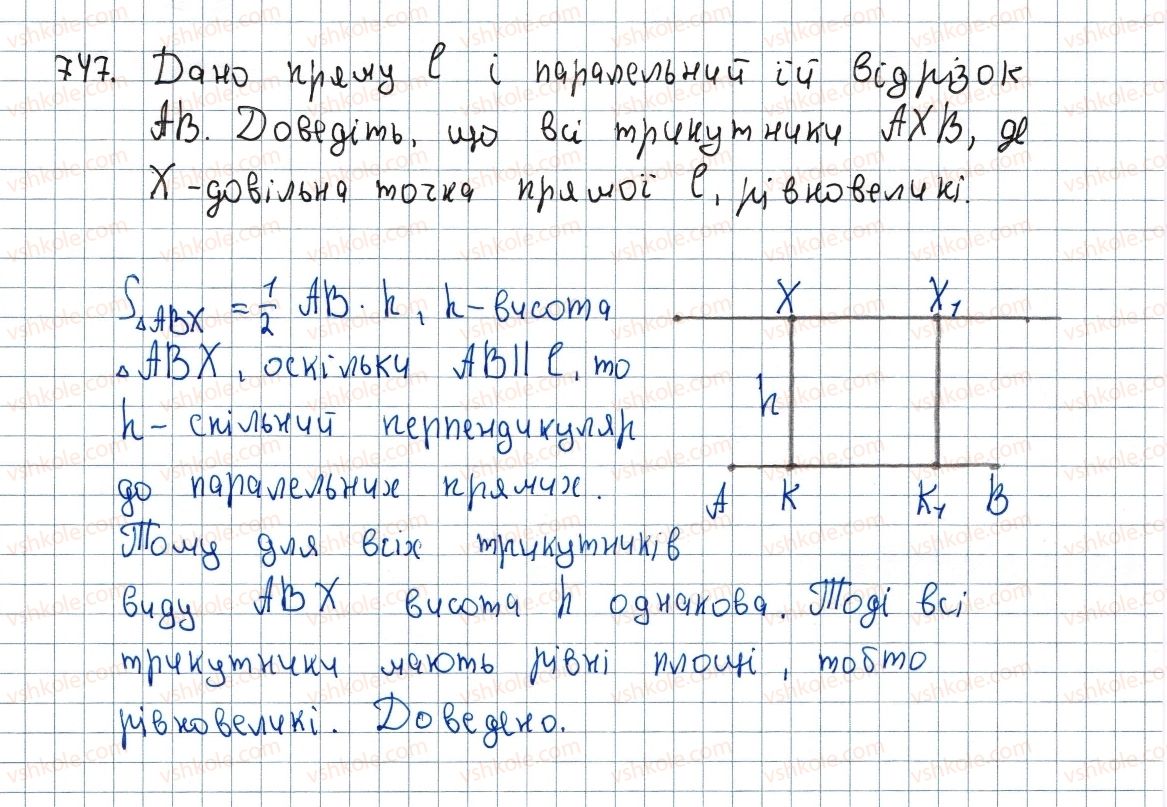 747. Дано пряму l і паралельний їй відрізок
AB. Доведіть, що всі трикутники AXB, де
X - довільна точка прямої l, рівновеликі.
S△ABX = 1/2 AB · h, h - висота
△ABX, оскільки AB || l, то
h - спільний перпендикуляр
до паралельних прямих.
Тому для всіх трикутників
виду ABX висота h однакова. Тоді всі
трикутники мають рівні площі, тобто
рівновеликі. Доведено.
X X₁
h
A K K₁ B
vshkole.com